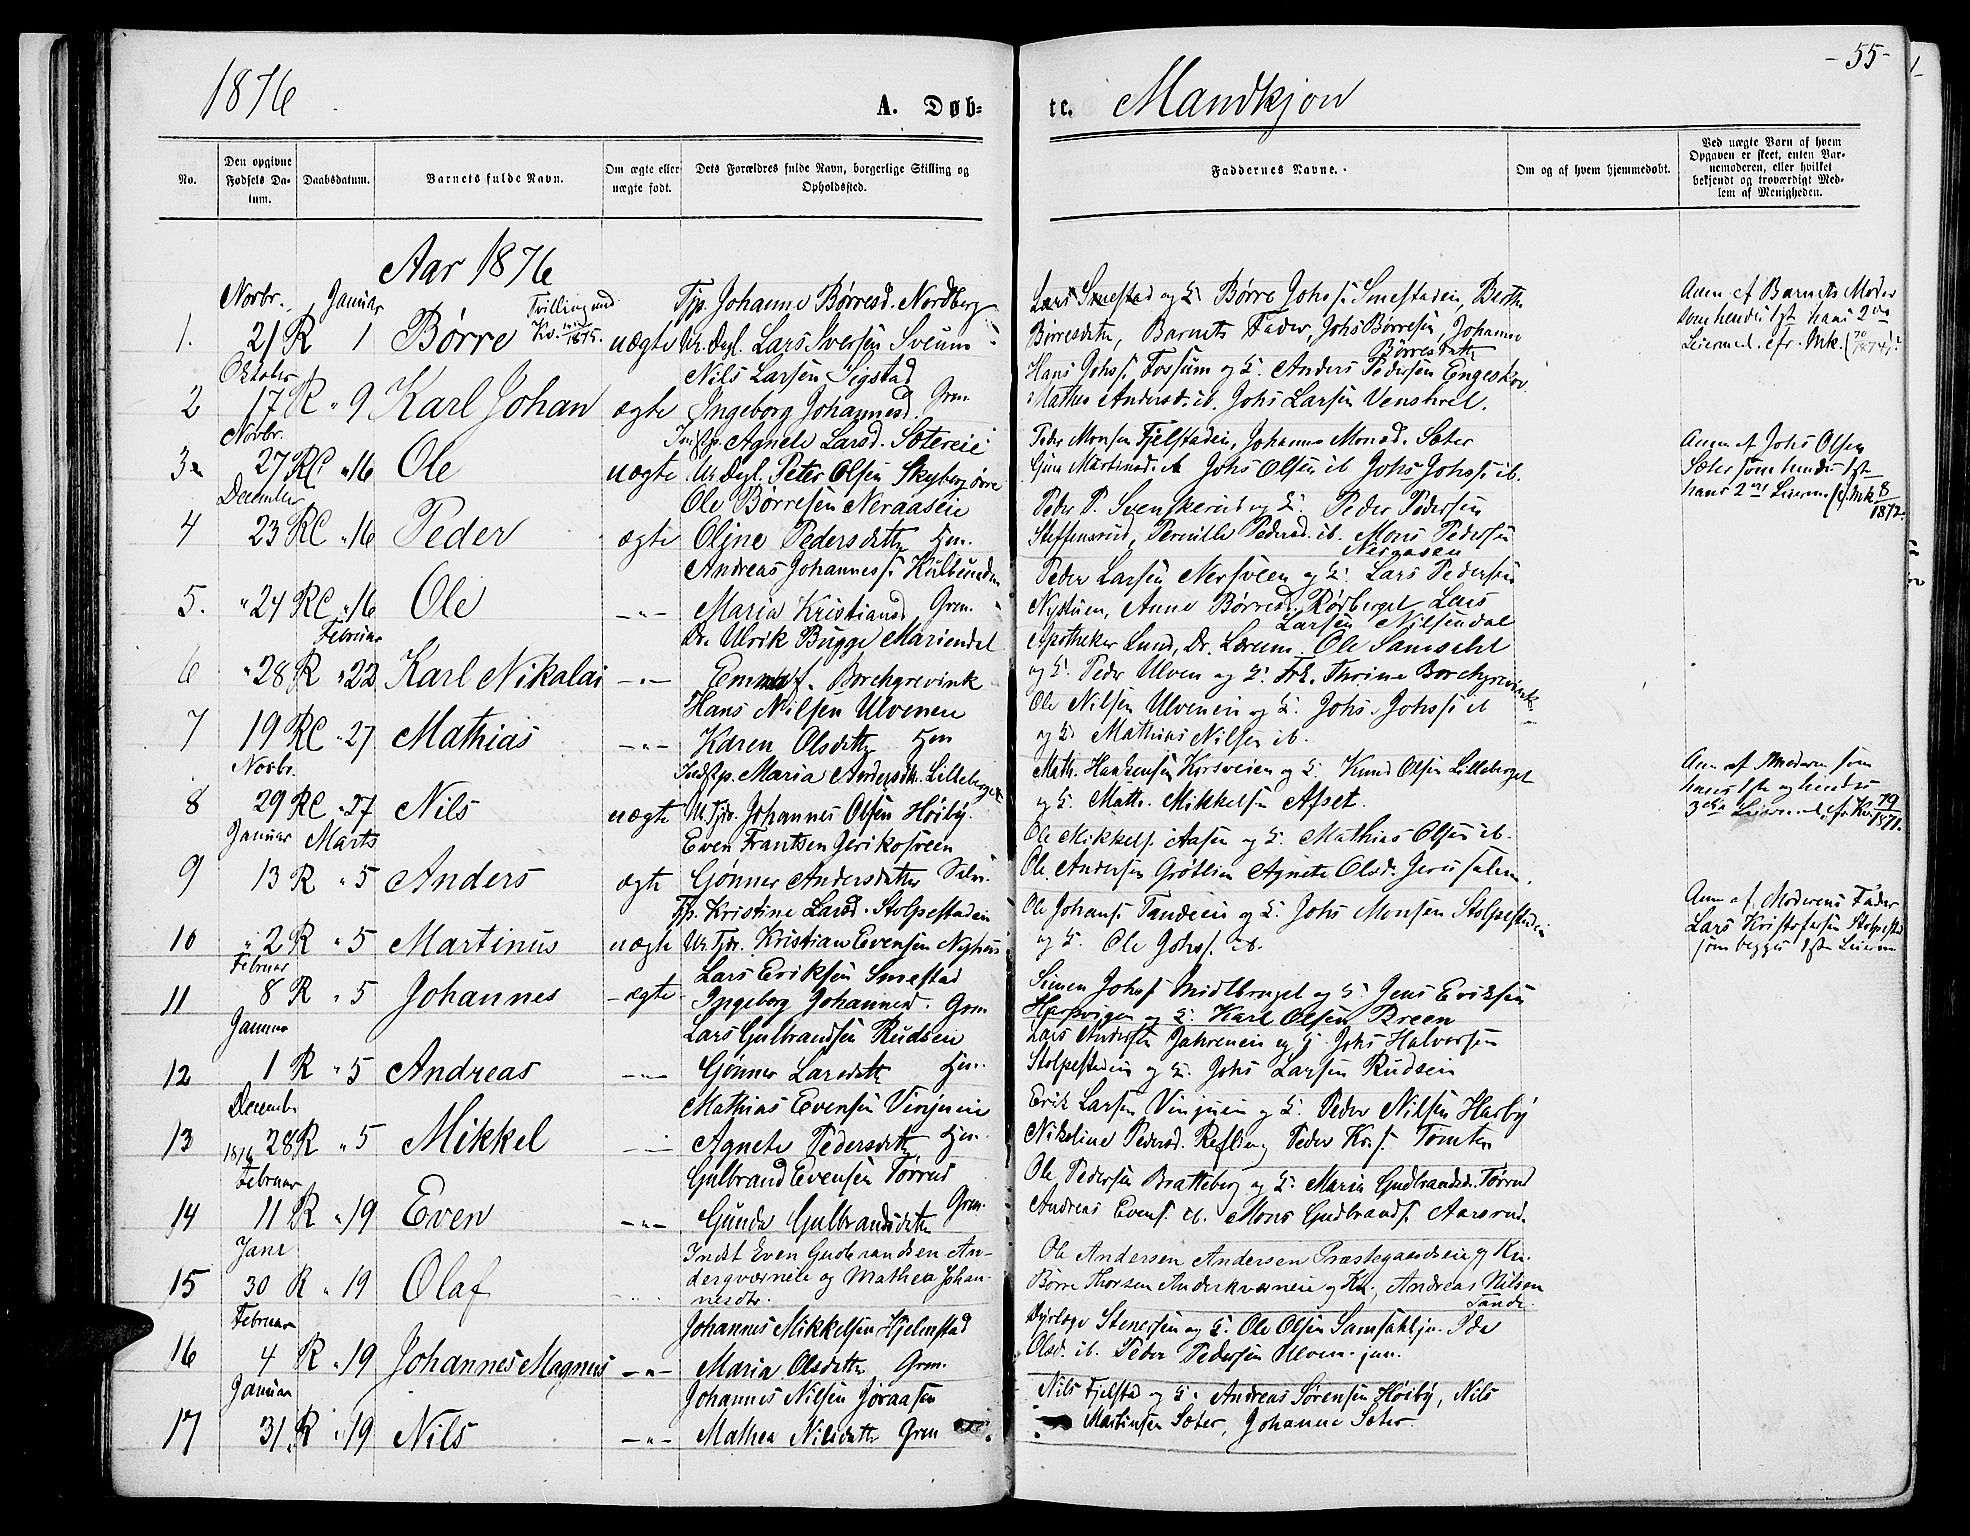 1876
A. Døb-
te. Mandkjøn
-55-
No.
Den opgivne Fødsels Da- tum.
Daabsdatum.
Barnets fulde Navn.
Om ægte eller uægte født.
Dets Forældres fulde Navn, borgerlige Stilling og Opholdssted.
Faddernes Navne.
Om og af hvem hjemmedøbt.
Ved uægte Børn af hvem Opgaven er skeet, enten Bar- nemoderen, eller hvilket bekjendt og troværdigt Med- lem af Menigheden.
Aar 1876
Novbr. Januar Tvilling med Tjp. Johanne Børresd. Nordberg
1. 21 R 1 Børre 1875. uægte Lars Iversen Sveum
Lars Smestad og Børre Johs Smestadeie, Berthe
Børresdatter, Barnets Fader, Johs Børresen, Johanne
Børresdatter
Anm. af Barnets Moder
som hendes 1ste hans 2den
Leierm. cfr. Mk. (70/1874).
Oktober Nils Larsen Sigstad
2 17 R " 9 Karl Johan ægte Ingeborg Johannesd. Grm.
Hans Johs. Fossum og Anders Pedersen Engeskov
Mathea Andersd. ib. Johs Larsen
Novbr. Agnete Larsd. Sætereie
3 27 RC " 16 Ole uægte Peter Olsen Skyberg øvre
Peder Monsen Fjelstadeie, Johanne Monsd. Sæter
Johs Olsen ib Johs Johs. ib.
Anm. af Johs Olsen
Sæter som hendes 1ste
hans 2det Leierm. cfr. Mk 8/1872.
December Ole Børresen Neraaseie
4 23 RC " 16 Peder ægte Oline Pedersdatter Hm.
Peder P. Svenskerud og Peder Pedersen
Steffensrud, Pernille Pedersd. ib. Mons Pedersen
Neraasen
Andreas Johannes.
5. " 24 RC " 16 Ole - " - Maria Kristiansd Grm.
Peder Larsen Nersveen og Lars Pedersen
Nystuen, Anne Børresd. Rødberget Lars
Larsen Nilsendal
Februar Dr. Ulrik Bugge Mariendal
6 " 28 R " 22 Karl Nikolai - " - Emma f. Borchgrevink
Apotheker Lund, Dr. Lærum. Ole Samsahl
og Peder Ulven og Frk. Thrine Borchgrevink
Hans Nilsen Ulveneie
7 19 RC " 27 Mathias - " - Karen Olsdatter Hm
Ole Nilsen Ulveneie og Johs. Johs. ib
og Mathias Nilsen ib.
Novbr. Maria Andersdtr. Lilleberget
8 29 RC " 27 Nils uægte Johannes Olsen Høiby.
Math. Haakensen Korsveien og Knud Olsen Lilleberget
og Math. Mikkelsen Afset.
Anm. af Moderen som
hans 1ste og hendes
3die Leierm. cfr. Kv. 79/1871.
Januar Marts Even Frantsen Jerikosveen
9 13 R " 5 Anders ægte Gønner Andersdatter Selv.
Ole Mikkels. Aasen og Mathias Olsen ib.
Ole Andersen Grøtlien Agnete Olsd. Jerusalem.
Tjp. Kristine Larsd. Stolpestadeie
10 " 2 R " 5 Martinus uægte Kristian Evensen Nyhus
Ole Johans. Tandeeie og Johs Monsen Stolpestadeie
og Ole Johs. ib.
Anm. af Moderens Fader
Lars Kristofersen Stolpestad
som begges 1ste Leierm
Februar Lars Eriksen Smestad
11 8 R " 5 Johannes - ægte Ingeborg Johannesd. Grm
Simen Johs. Midlbraget og Jens Eriksen
og Karl Olsen Breen
Januar Lars Gulbrandsen Rudseie
12 1 R " 5 Andreas - " - Gønner Larsdatter Hm.
Lars Andersen og Johs Halvorsen
Stolpestadeie og Johs Larsen Rudseie
Decembr Mathias Evensen Vinjueie
13 28 R " 5 Mikkel - " - Agnete Pedersdatter Hm.
Erik Larsen Vinjueie og Peder Nilsen Harby
Nikoline Pedersd. Refling Peder Tomten
1876
Februar Gulbrand Evensen Tørrud
14 11 R " 19 Even - " - Gunda Gulbrandsdatter Grm.
Ole Pedersen Bratteberg og Maria Gudbrandsd. Tørrud
Andreas Evens. ib. Mons Gudbrands. Aarsrud.
Janr Indst Even Gudbrandsen An-
15 30 R " 19 Olaf - " - derqværneie og Mathea Johan-
nesdtr.
Ole Andersen Andersen Præstegaardseie og Ku.
Børre Thorsen Anderkværneie og Ku., Andreas Nilsen
Tande.
Februar Johannes Mikkelsen Hjelmstad
16 4 R " 19 Johannes Magnus - " - Maria Olsdatter Grm.
Dyrlæge Stenersen og Ole Olsen Samsahl jn. Ida
Olsd. ib. Peder Pedersen Ulven jun.
Januar Johannes Nilsen Joraasen
17 31 R " 19 Nils - " - Mathea Nilsdatter Grm
Nils Fjelstad og Andreas Sørensen Høiby, Nils
Martinsen Sæter, Johanne Sæter